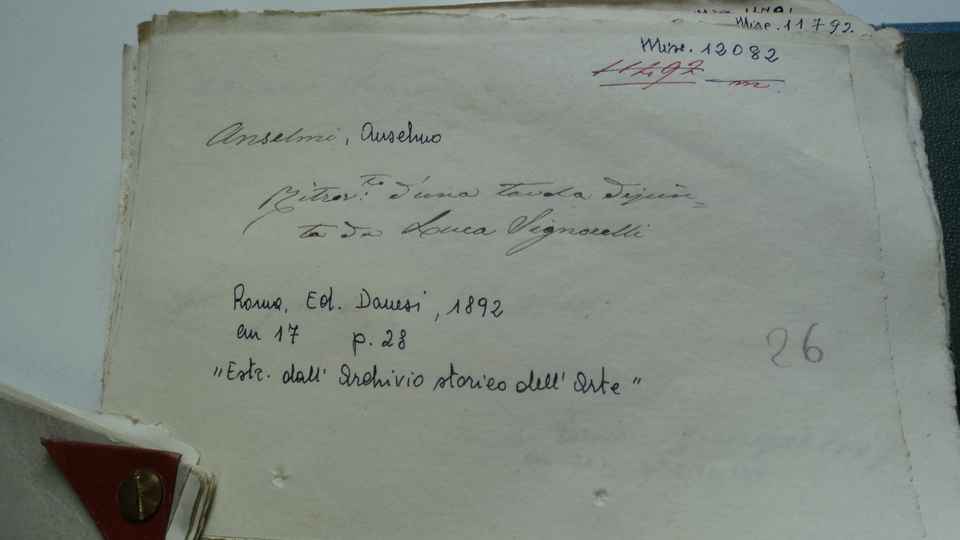 Misc. 11792.
Misc. 12082
m.
Anselmi, Anselmo
Ritrov.to d'una tavola dipin-
ta da Luca Signorelli
Roma, Ed. Danesi, 1892
cm 17 p. 28
26
"Estr. dall' Archivio storico dell' Arte"